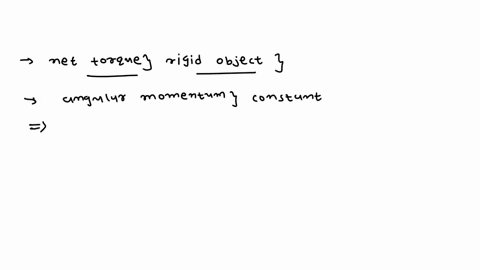 → net torque} rigid object }
→ angular momentum} constant
⇒